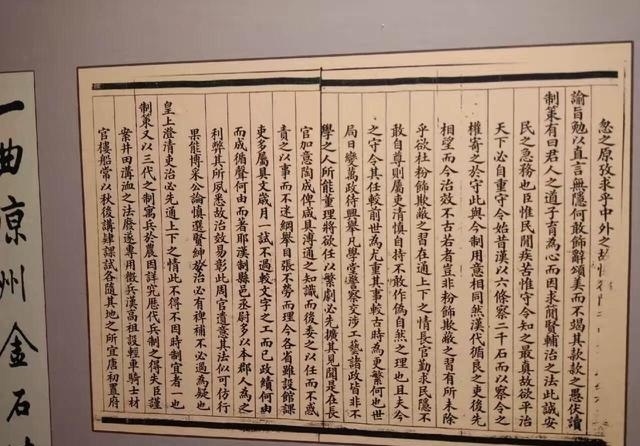 忽之原攷求乎中外之故
諭旨勉以直言無隱何敢飾辭頌美而不竭其款款之愚伏讀
制策有曰君人之道子育為心而因求簡賢輔治之法此誠安
民之急務也臣惟民閒疾苦惟守令知之最真故欲平治
天下必自重守令始昔漢以六條察二千石而以察令之
權寄之於守此與今制用意相同然漢代循良之吏後先
相望而今治效不古若者豈非粉飾欺蔽之習有所未除
乎欲杜粉飾欺蔽之習在通上下之情長官勤求民隱不
敢自尊則屬吏清慎自持不敢作偽自然之理也且夫今
之守令其任較前世為尤重其事較古時為尤繁何也世
局日變萬政待興舉凡學堂警察交涉工藝諸政皆非不
學之人所能董理將欲任以繁劇必先擴其見聞是在長
官加意陶成俾咸具溥通之知識而後委之以任而不惑
責之以事而不迷綱舉目張不勞而理今各省雖設館課
吏多屬具文歲月一試不過較文字之工而已政績何由
而成循聲何由而著耶漢制縣邑丞尉多以本郡人為之
利弊其所夙悉故治效易彰此周官遺意其法似可仿行
果能博采公論慎選賢紳於治必有裨補不必過為疑也
皇上澄清吏治必先通上下之情此不得不因時制宜者一也
制策又以三代之制寓兵於農因詳究歷代兵制之得失臣謹
案井田溝洫之法廢遂專用徵兵漢高祖設輕車騎士材
官樓船常以秋後講肄課試各隨其地之所宜唐初置府
一曲涼州金石